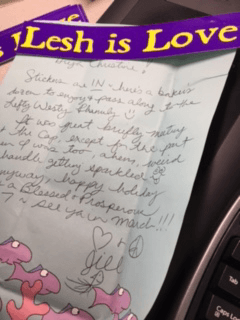 Lesh is Love
Christine!
Stickers are IN - here's a
to enjoy & pass along to the
lefty Westy
It was great briefly meeting
the Cap, except for the part
I was too, ahem, weird
handle getting sparkled.
Anyway, happy holiday
& a Blessed & Prosperous
'7 ~ see ya in March!!!
Jill
Caps Lo